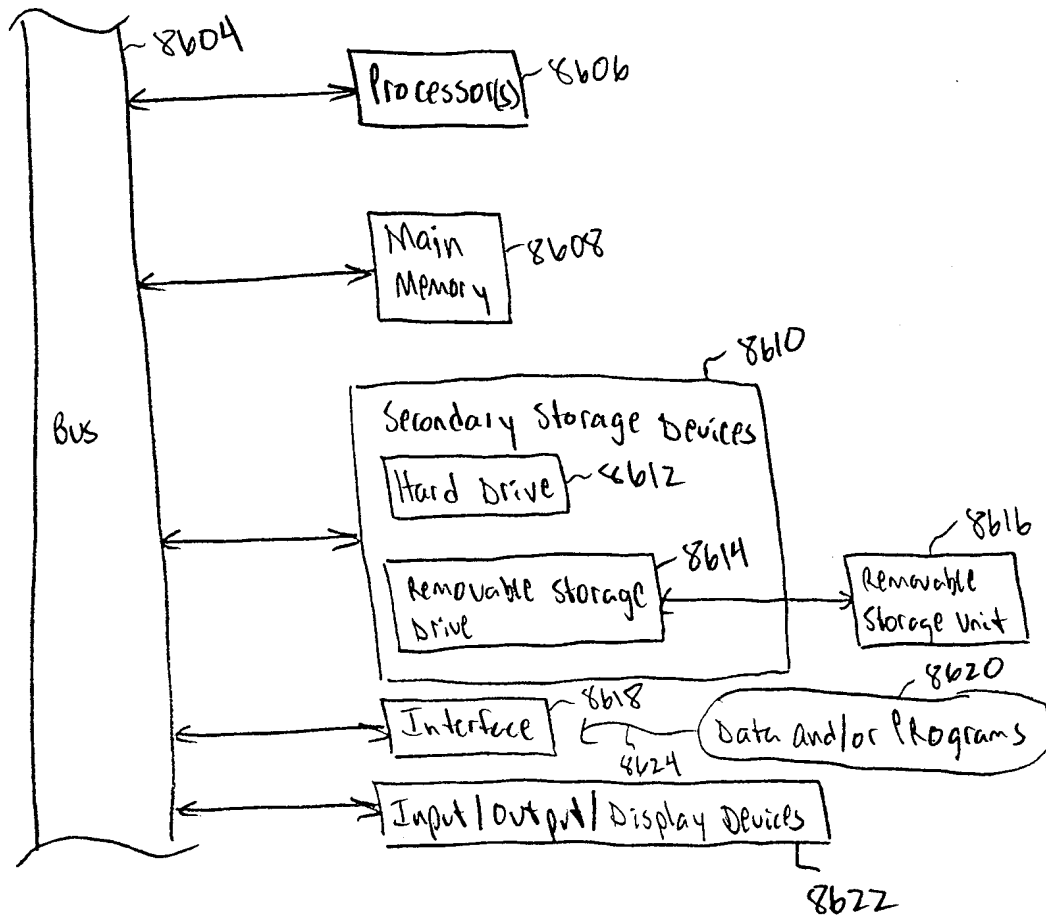 8604
Processor(s)
8606
Main
Memory
8608
8610
Bus
Secondary Storage Devices
Hard Drive
8612
8614
Removable Storage
Drive
8616
Removable
Storage Unit
8618
Interface
8620
Data and/or Programs
8624
Input/Output/Display Devices
8622